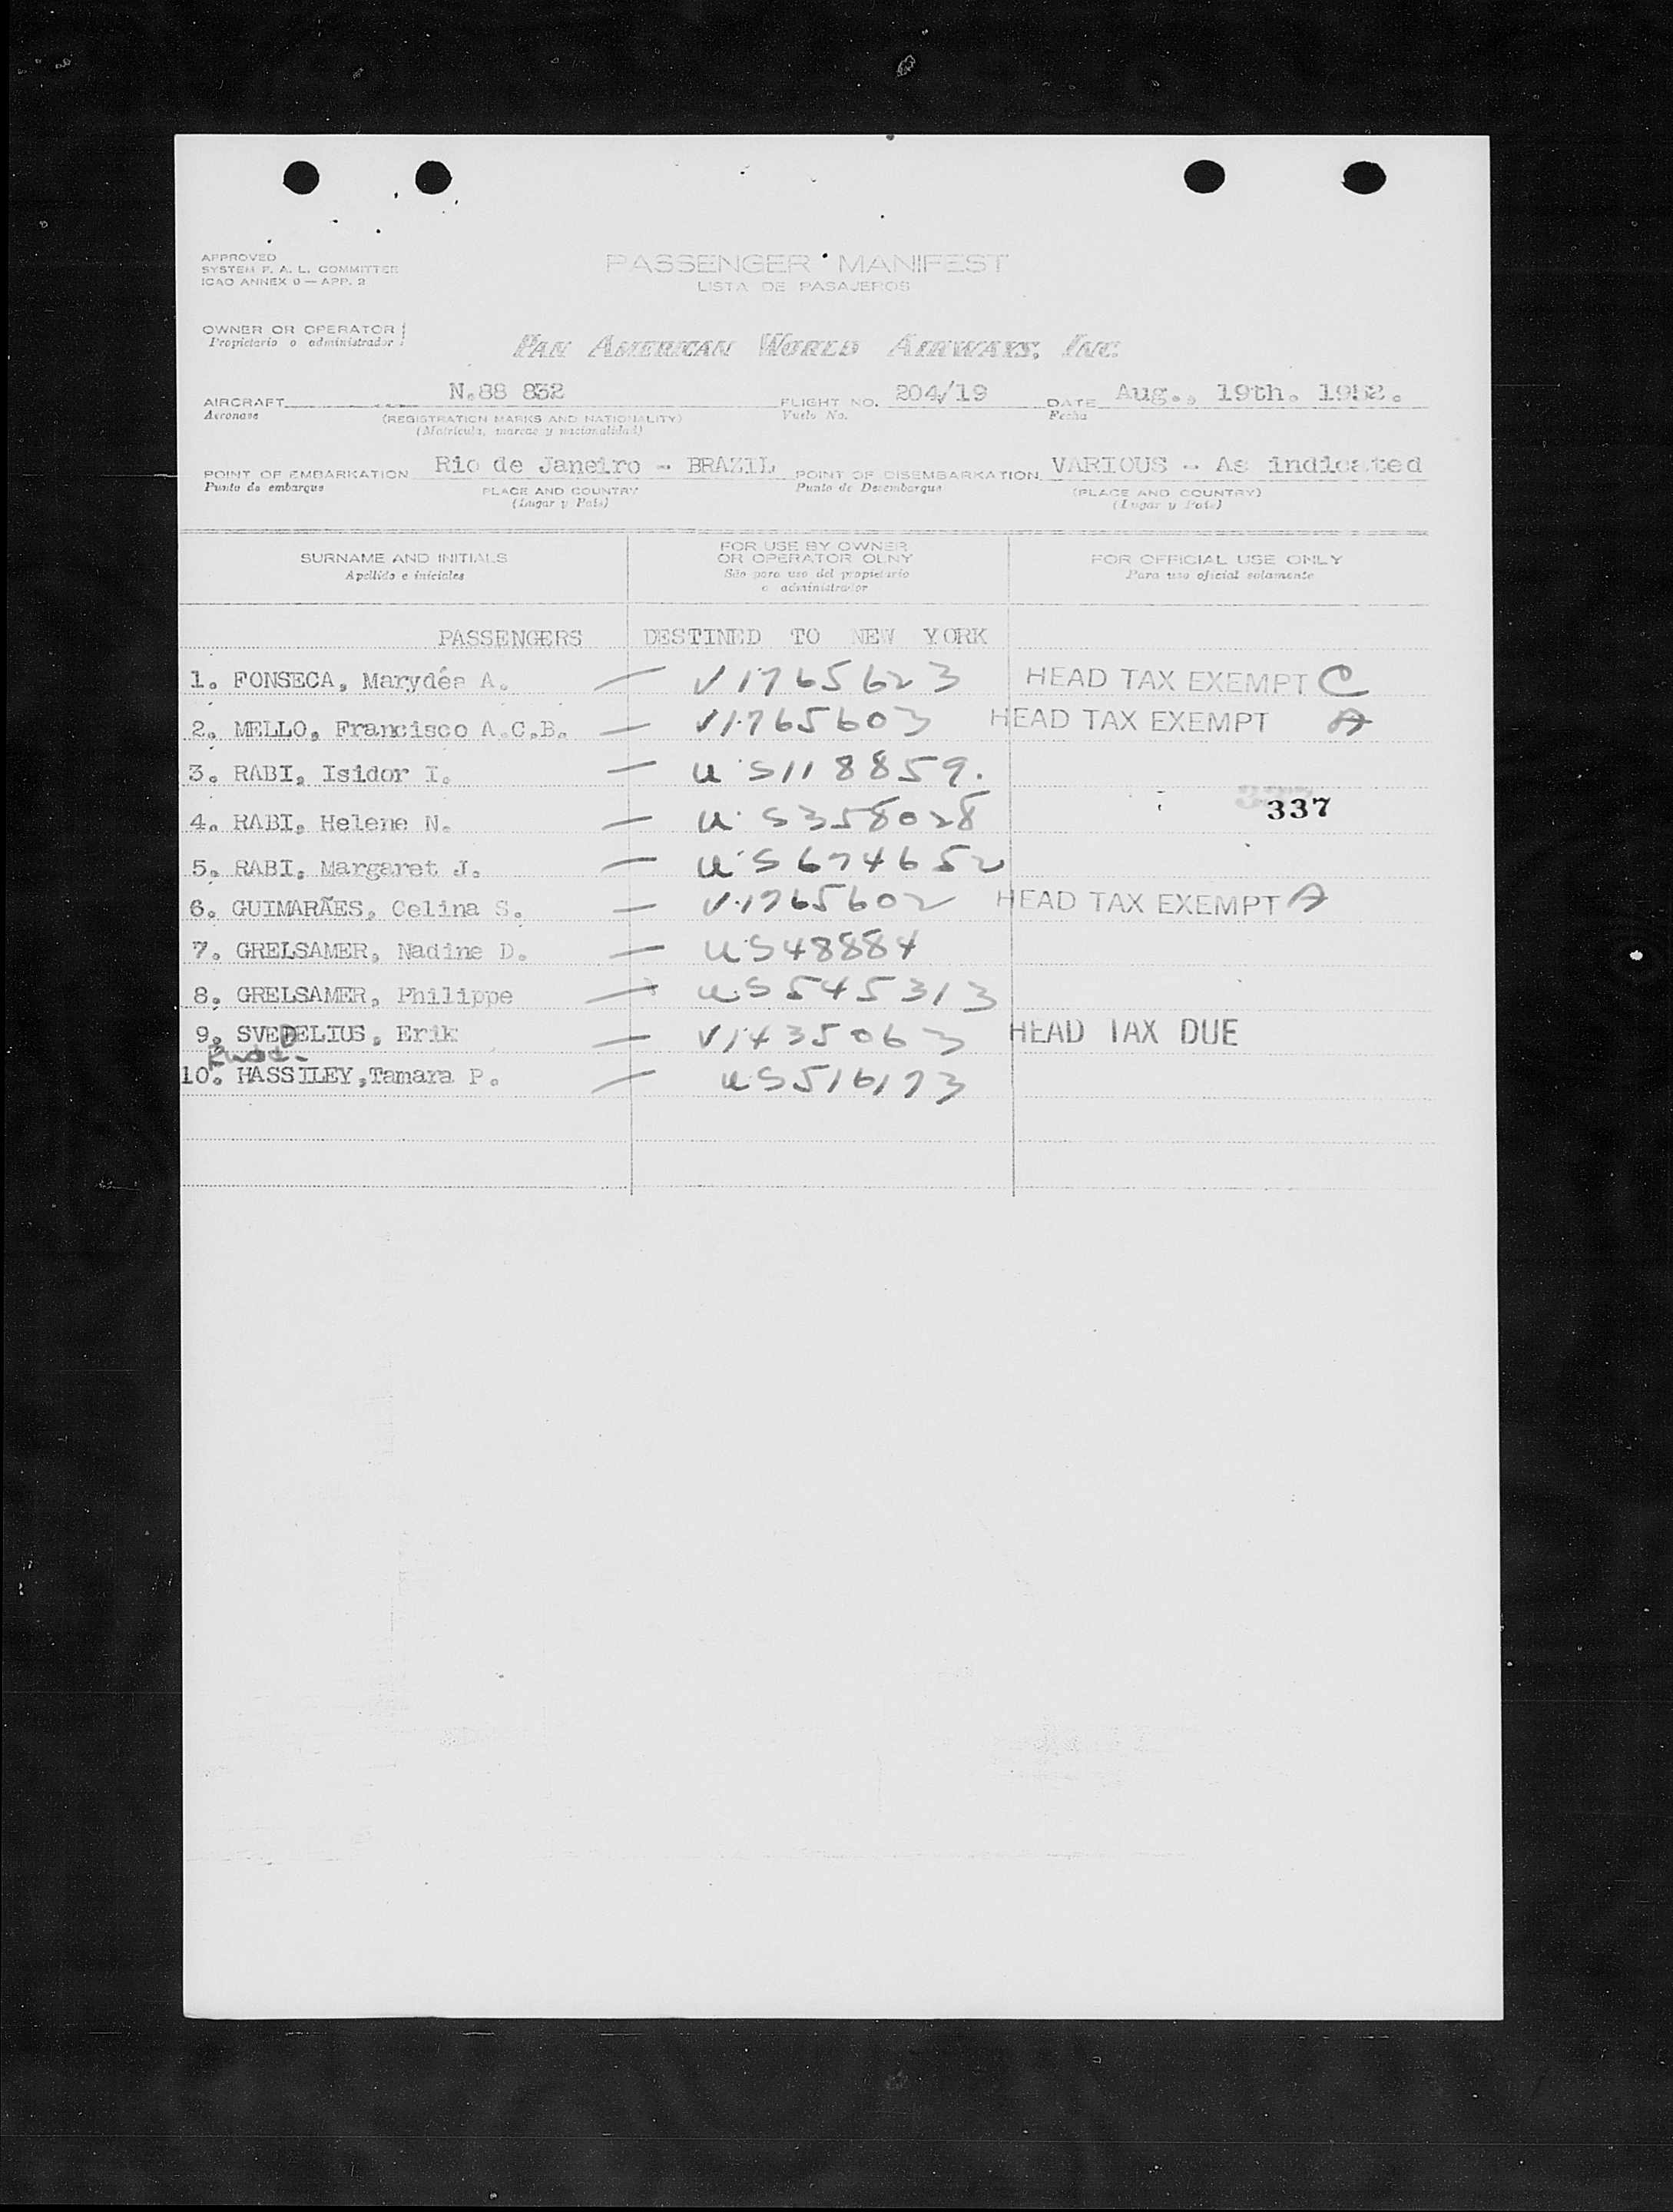 APPROVED
SYSTEM F. A. L. COMMITTEE
ICAO ANNEX 9 — APP. 2
PASSENGER MANIFEST
LISTA DE PASAJEROS
OWNER OR OPERATOR
Propietario o administrador
PAN AMERICAN WORLD AIRWAYS, INC.
AIRCRAFT N.88 832 FLIGHT NO. 204/19 DATE Aug., 19th. 1952.
Aeronave (REGISTRATION MARKS AND NATIONALITY) Vuelo No. Fecha
(Matricula, marcas y nacionalidad)
POINT OF EMBARKATION Rio de Janeiro - BRAZIL POINT OF DISEMBARKATION VARIOUS - As indicated
Punto de embarque PLACE AND COUNTRY Punto de Desembarque (PLACE AND COUNTRY)
(Lugar y Pais) (Lugar y Pais)
SURNAME AND INITIALS FOR USE BY OWNER OR OPERATOR OLNY FOR OFFICIAL USE ONLY
Apellido e iniciales São para uso del propietario o administrador Para uso oficial solamente
PASSENGERS DESTINED TO NEW YORK
1. FONSECA, Marydéa A. — V1765623 HEAD TAX EXEMPT C
2. MELLO, Francisco A.C.B. — V1765603 HEAD TAX EXEMPT A
3. RABI, Isidor I. — US118859.
4. RABI, Helene N. — US358028
337
5. RABI, Margaret J. — US674652
6. GUIMARÃES, Celina S. — V1765602 HEAD TAX EXEMPT A
7. GRELSAMER, Nadine D. — US48884
8. GRELSAMER, Philippe — US545313
9. SVEDELIUS, Erik — V1435063 HEAD TAX DUE
10. HASSILEY, Tamara P. — US516173